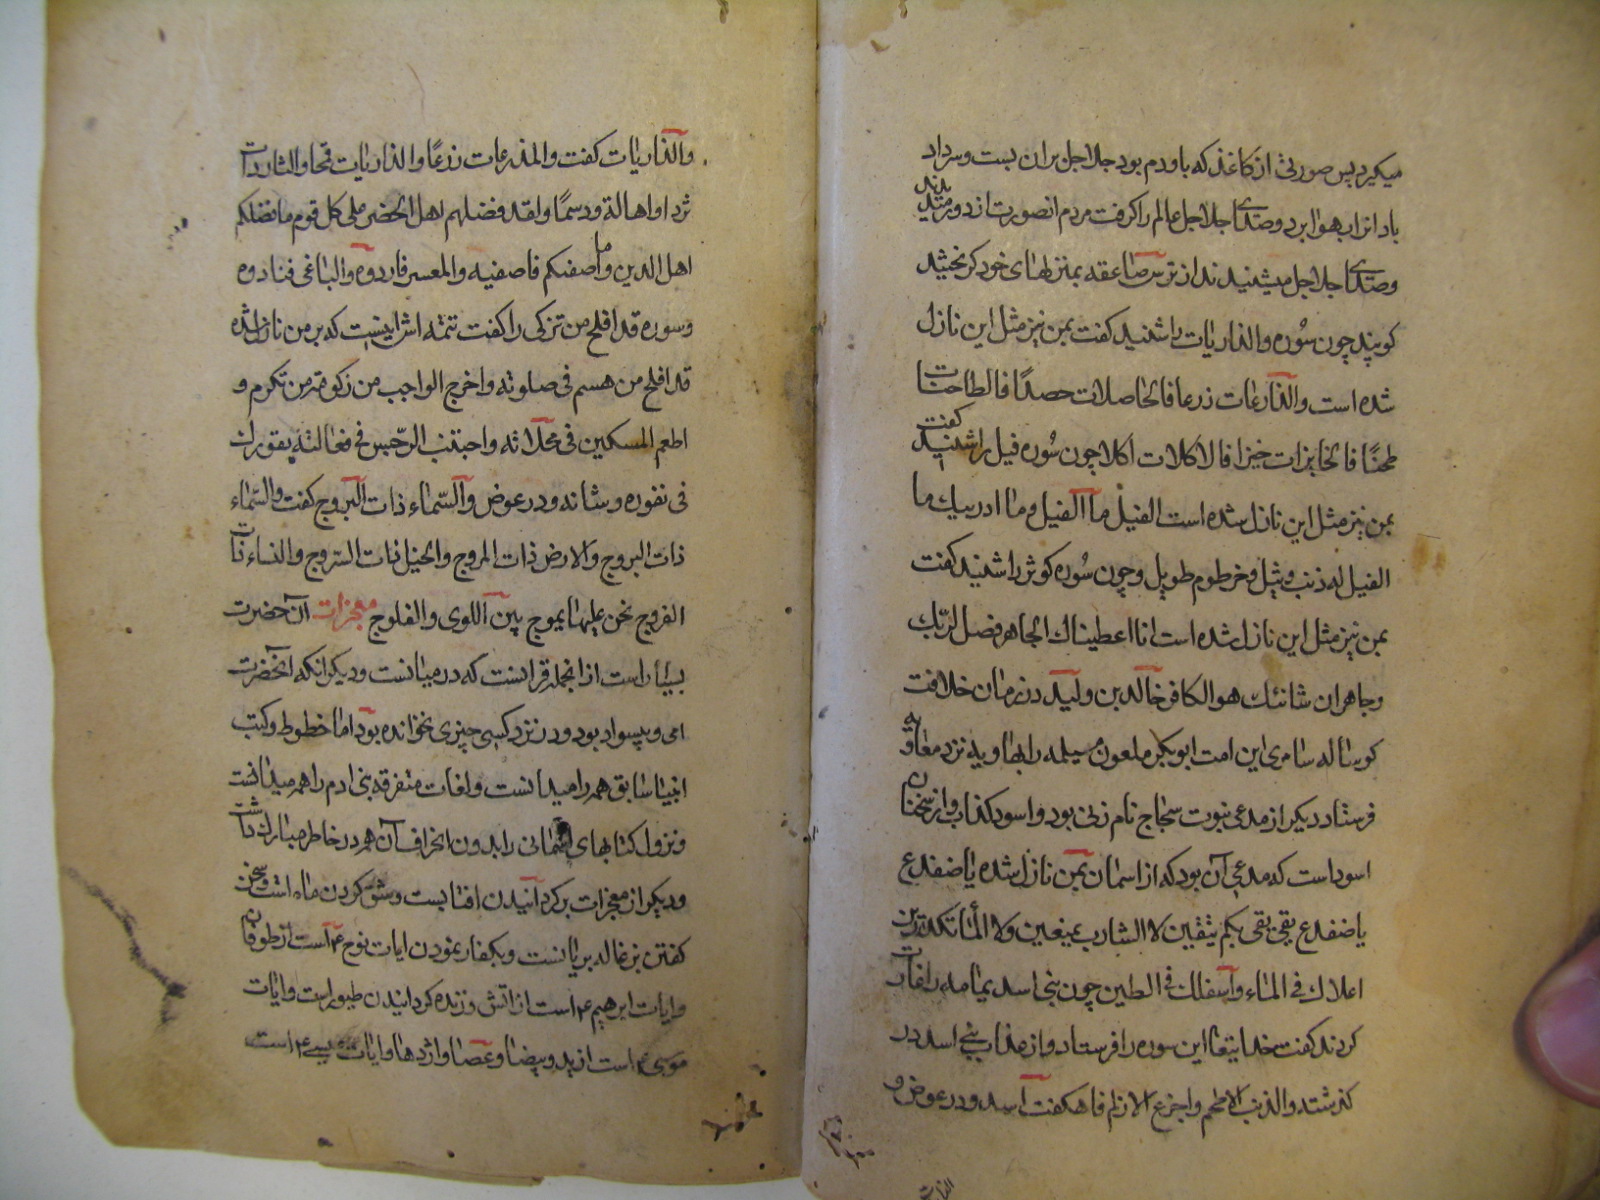 میکیرد پس صورتی از کاغذ که باو دم بود جلاجل بران بست و سرداد
باد انرا بهوا برد و صدای جلاجل عالم را کرفت مردم انصورت از دور میدیدند
وصدای جلاجل میشنیدند از ترس صاعقه بمنزلهای خود کریختند
کویند چون سوره والذاریات را شنید کفت بمن نیز مثل این نازل
شده است والذارعات ذرعا فالحاصلات حصدا فالطاحنات
طحنا فالخابزات خبزا فالاکلات اکلا چون سوره فیل را شنید کفت
بمن نیز مثل این نازل شده است الفیل ما الفیل وما ادریک ما
الفیل له ذنب وثیل وخرطوم طویل وچون سوره کوثر را شنید کفت
بمن نیز مثل این نازل شده است انا اعطیناک الجاهر فصل لربک
وجاهر ان شانئک هو الکافر خالد بن ولید در زمان خلافت
کوساله سامری این امت ابو بکر ملعون مسیلمه را بهاویه نزد معاویه
فرستاد دیکر از مدعی نبوت سجاج نام زنی بود و اسود کذاب و از سخنان
اسود است که مدعی آن بود که از اسمان بمن نازل شده یا ضفدع
یا ضفدع بقی بقی بکم تنقین لا الشارب تمنعین ولا الماء تکدرین
اعلاک فی الماء واسفلک فی الطین چون بنی اسد یمامه را غارت
کردند کفت خدایتعا این سوره را فرستاد و از عذاب بنی اسد در
کذشته والذئب الاطحم واجزع الازلم فاهکفت اسد و در عوض و
والذاریات کفت والمذرعات زرعا والذاریات قمحا والثاردات
ثردا واهالة ودسما ولقد فضلهم اهل الحضر علی کل قوم ما فضلکم
اهل الدین وما صفیکم فاصفیه والمعسر فاردوه والباغی فنادوه
وسوره قد افلح من تزکی را کفت تتمه اش اینست که بر من نازل شده
قد افلح من هسم فی صلوته واخرج الواجب من زکوته من تکرم و
اطعم المسکین فی مخلاته واجتنب الرجس فی فعالته بقورك
فی نقوره وشاته ودر عوض والسماء ذات البروج کفت والسماء
ذات البروج والارض ذات المروج والخیل ذات السروج والنساء ذات
الفروج نحن علیها یموج بین اللوی والفلوج معجزات آن حضرت
بسیار است از انجمله قرانست که در میانست ودیکر انکه انحضرت
امی و بیسواد بود و در نزد کسی چیزی نخوانده بود اما خطوط وکتب
انبیا سابق همه را میدانست ولغات متفرقه بنی ادم را همه میدانست
ونزول کتابهای اسمانی را بدون انحراف آن همه در خاطر مبارك داشت
ودیکر از معجزات برکردانیدن افتابست وشق کردن ماه است وسخن
کفتن بزغاله بریانست وبکفار نمودن ایات نوح ع است از طوفان
وایات ابرهیم ع است از اتش وزنده کردانیدن طیور است وایات
موسی ع است از ید وبیضا وعصا واژدها وایات عیسی ع است